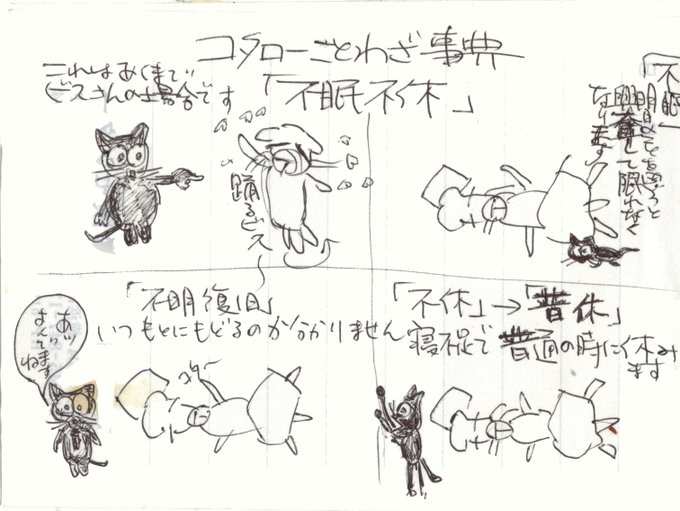 コタローことわざ事典
これはあくまで
ビスさんの場合です
「不眠不休」
踊るビス
「不眠
明日のことを思うと
興奮して眠れなく
なります
「不明復旧」
いつもとにもどるのか分かりません
あッ
よんでます
ね
「不休」→「普休」
寝不足で普通の時に休み
ます